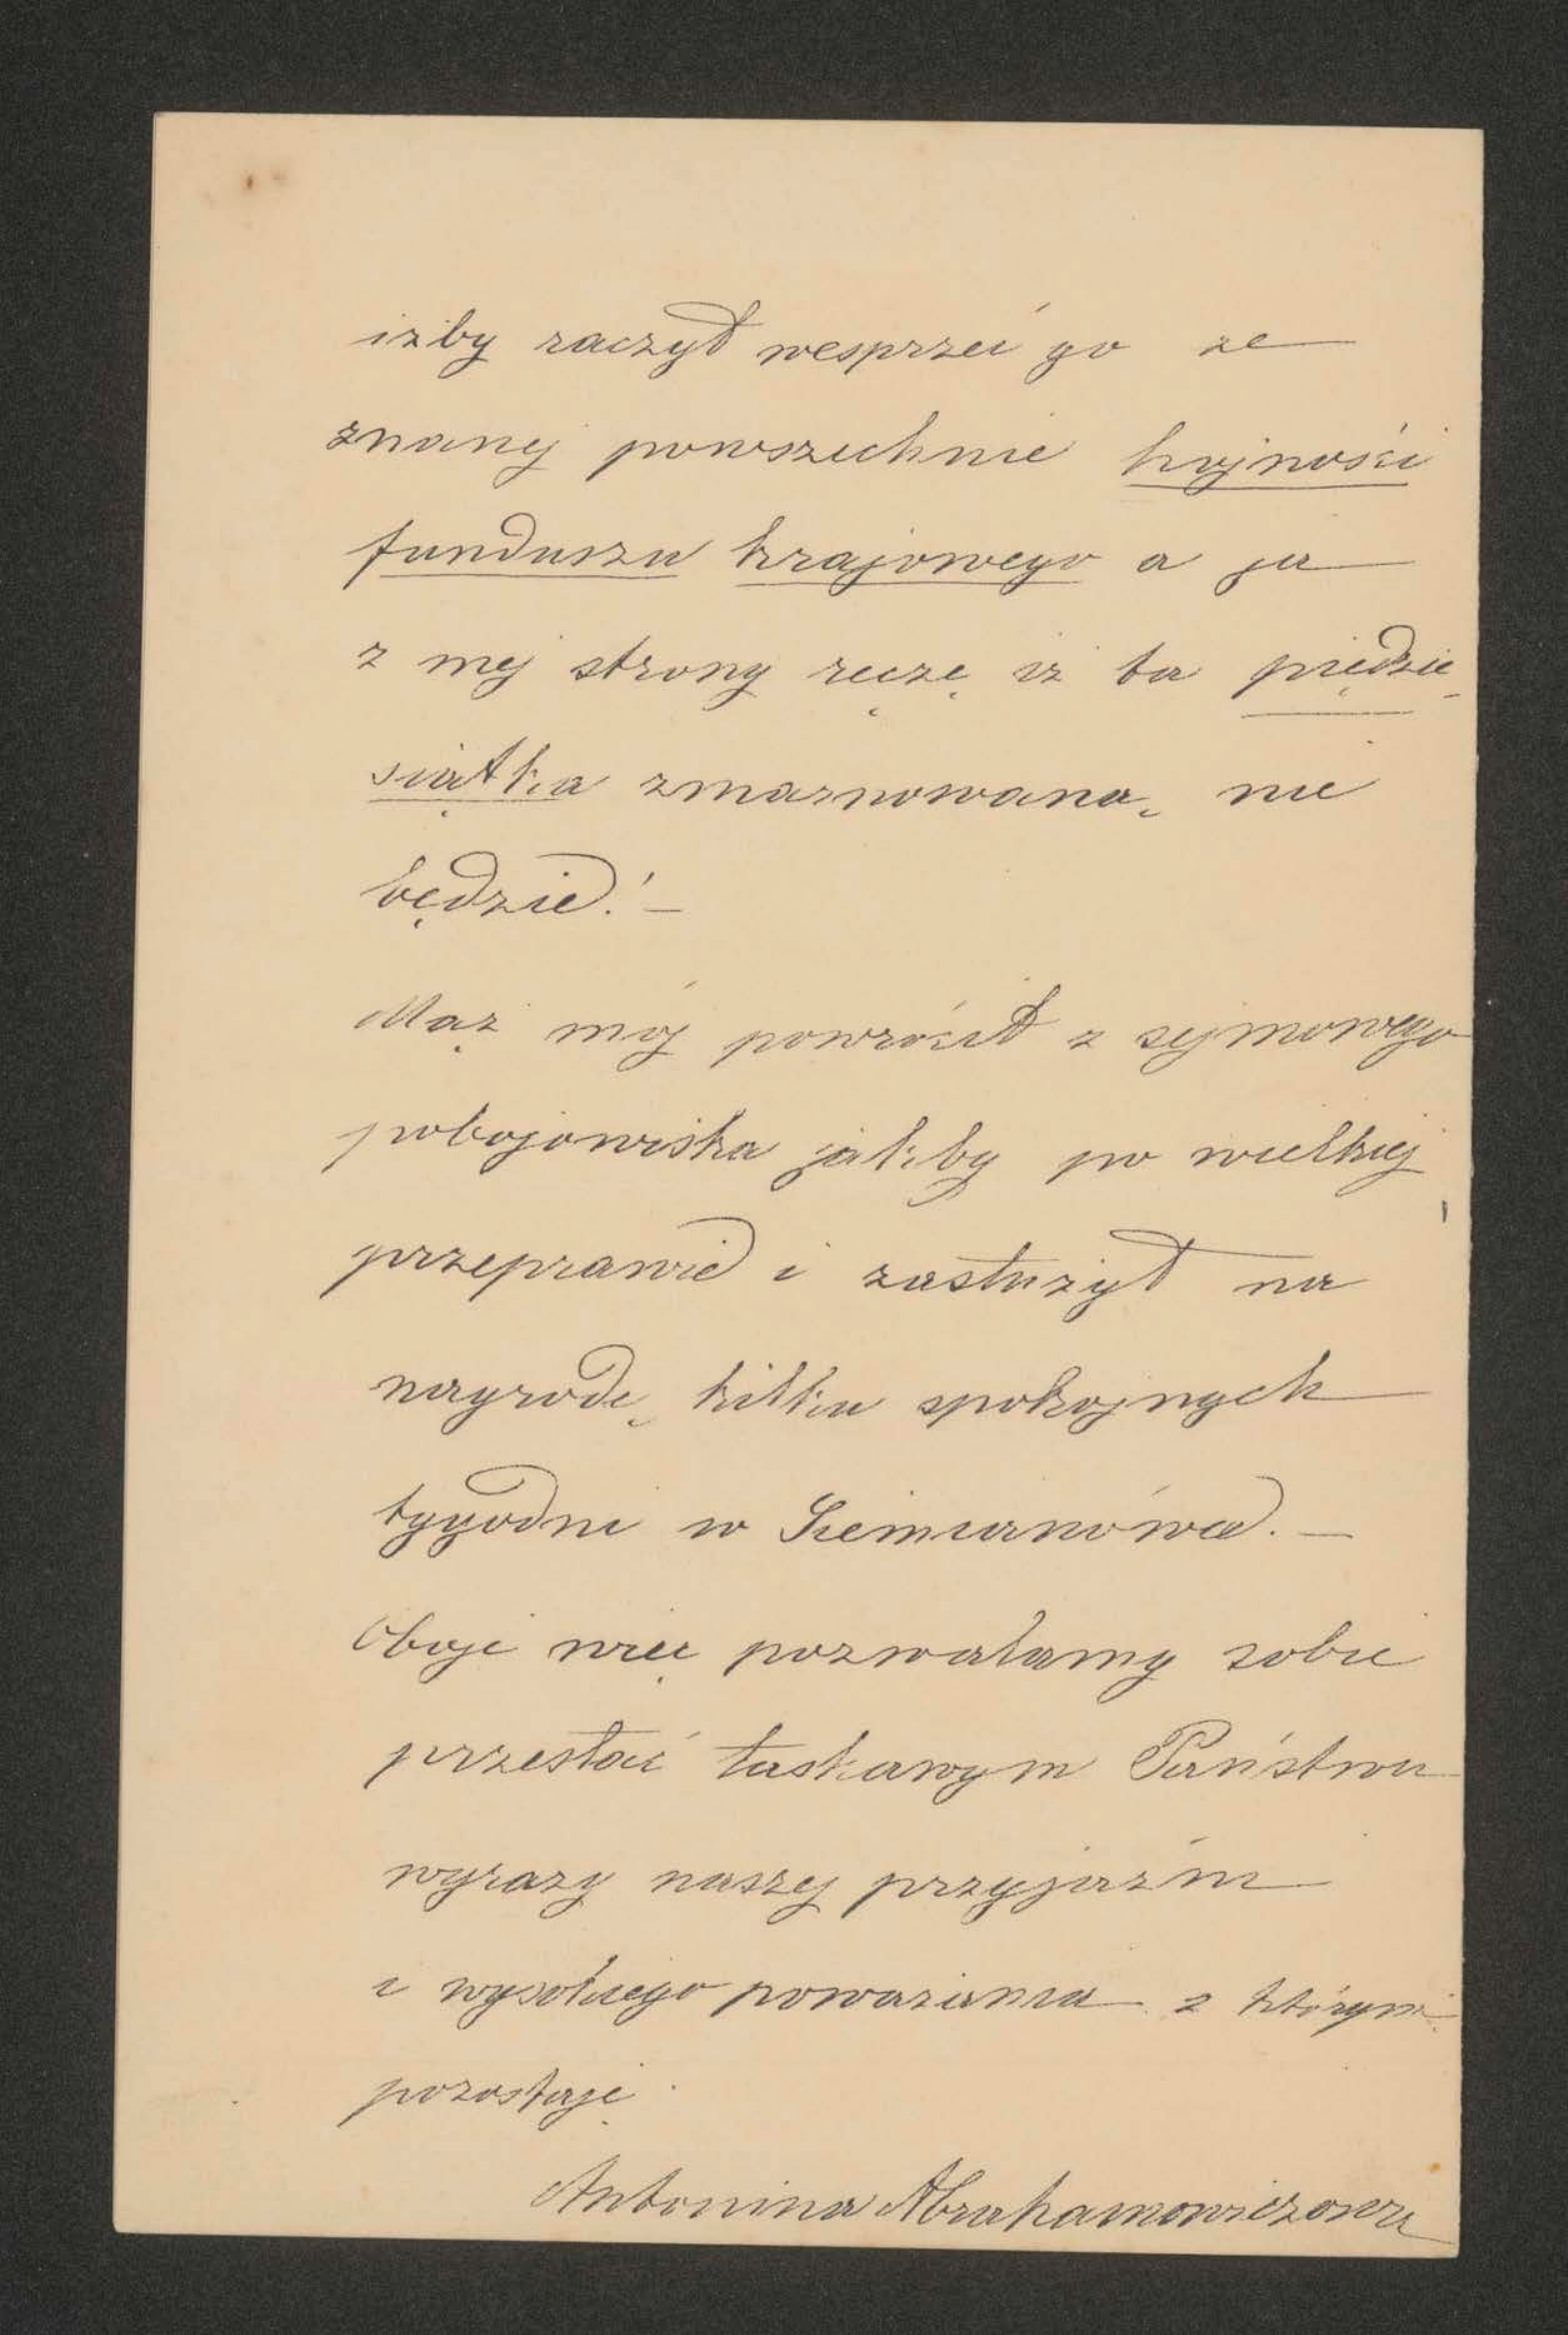 iżby raczył wesprzeć go ze
znanej powszechnie hojności
funduszu krajowego a ja
z mej strony ręczę iż ta piędzie
siątka zmarnowaną nie
będzie! —
Mąż mój powrócił z sejmowego
pobojowiska jakby po wielkiej
przeprawie i zasłużył na
nagrodę kilku spokojnych
tygodni w Siemianówce. —
Oboje więc pozwalamy sobie
przesłać łaskawym Państwu
wyrazy naszej przyjaźni
i wysokiego poważania z którymi
pozostaję.
Antonina Abrahamowiczowa